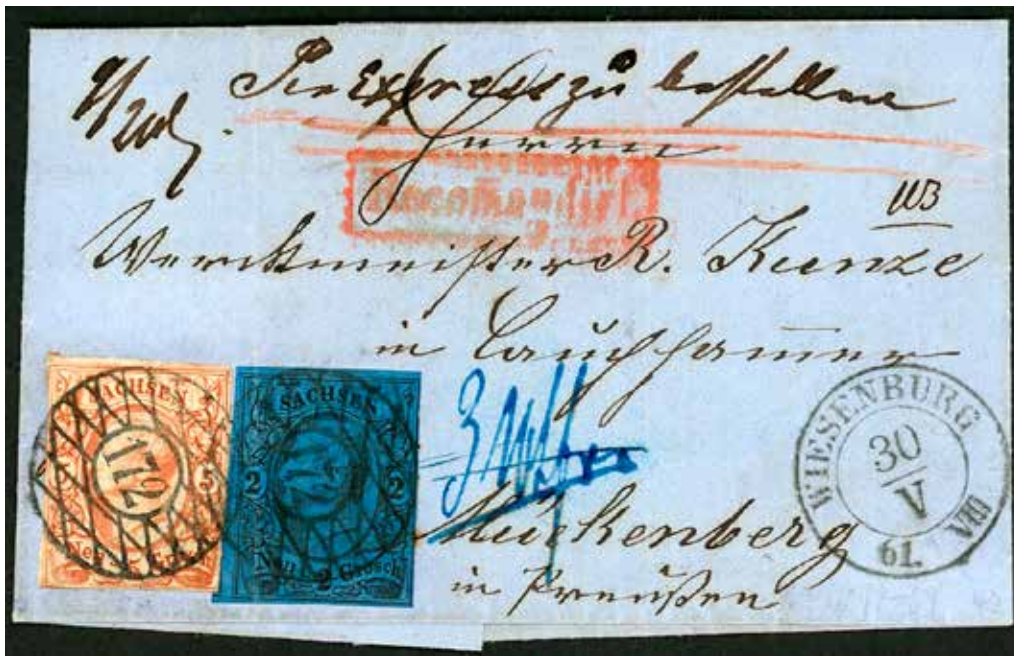 Per Express zu bestellen
Herrn
Recomandirt
Werckmeister R. Kunze
in Lauchhammer
Mückenberg
in Preußen
SACHSEN
5
5
Neu Grosch
172
SACHSEN
2
2
Neu 2 Grosch
WIESENBURG
30
V
61.